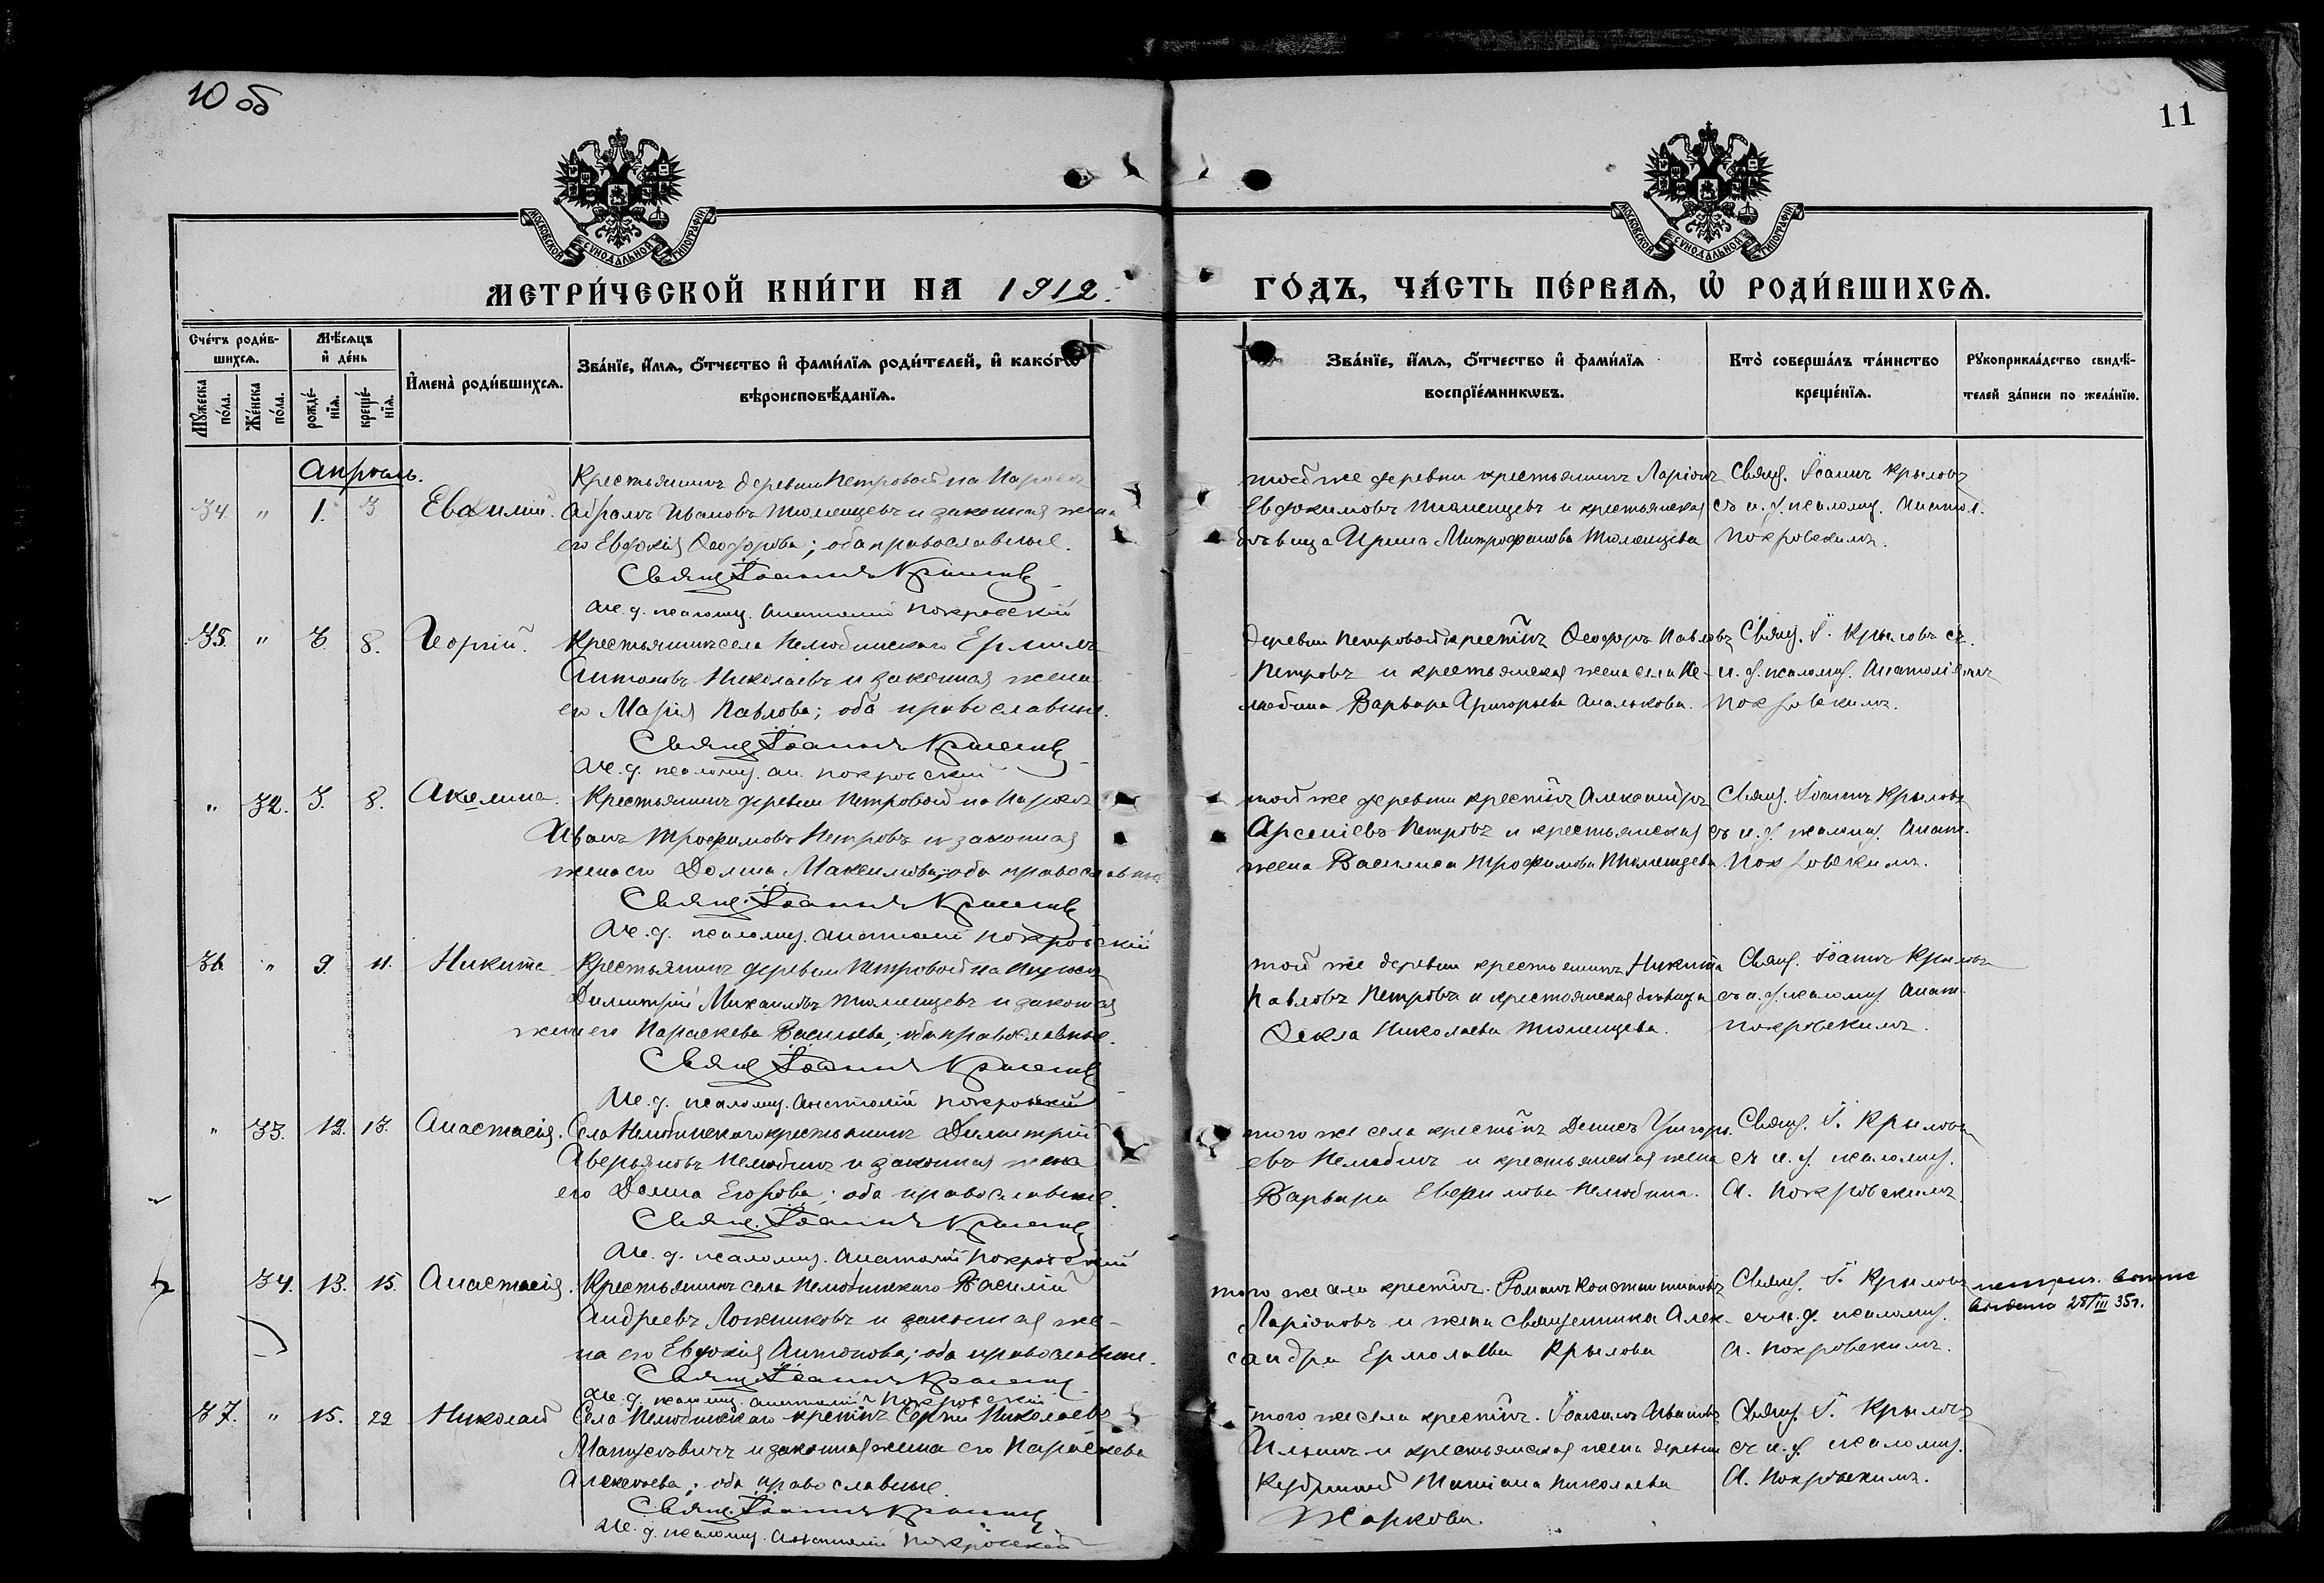 10 об
11
МОСКОВСКОЙ СѴНОДАЛЬНОЙ ТИПОГРАФІИ.
МОСКОВСКОЙ СѴНОДАЛЬНОЙ ТИПОГРАФІИ.
МЕТРИ́ЧЕСКОЙ КНИ́ГИ НА 1912.
ГО́ДЪ, ЧА́СТЬ ПЕ́РВАѦ, Ѡ҆ РОДИ́ВШИХСѦ.
Сче́тъ роди́в-
шихсѧ.
Мꙋжеска по́ла.
Же́нска по́ла.
Мѣ́сѧцъ
и҆ де́нь
рожде́-нїѧ.
креще́-нїѧ.
И҆мена̀ роди́вшихсѧ.
Зва́нїе, и҆́мѧ, ѻ҆́тчество и҆ фами́лїѧ роди́телей, и҆ како́гѡ
вѣроисповѣ́данїѧ.
Зва́нїе, и҆́мѧ, ѻ҆́тчество и҆ фами́лїѧ
воспрїе́мникѡвъ.
Кто̀ соверша́лъ та́инство
креще́нїѧ.
Рꙋкоприкла́дство свидѣ́-
телей за́писи по жела́нїю.
Апрѣль.
34. " 1. 3 Евѳимій.
Крестьянинъ деревни Петровой на
Абрамъ Ивановъ Тюменцевъ и законная жена
его Евдокія Ѳеодорова; оба православные.
Свящ. Іоаннъ Крыловъ
И. д. псаломщ. Анатолій Покровскій
той же деревни крестьянинъ Ларіонъ
Евдокимовъ Тюменцевъ и крестьянская
дѣвица Ирина Митрофанова Тюменцева
Свящ. Іоаннъ Крыловъ
съ и. д. псаломщ. Анатол.
Покровскимъ.
35. " 3. 8. Георгій.
Крестьянинъ села Нелюбинскаго Ермилъ
Антоновъ Николаевъ и законная жена
его Марія Павлова; оба православные.
Свящ. Іоаннъ Крыловъ
И. д. псаломщ. Ан. Покровскій
деревни Петровой крест҃инъ Ѳеодоръ Павловъ
Петровъ и крестьянская жена села Не-
любина Варвара Григорьева
Свящ. І. Крыловъ съ
и. д. псаломщ. Анатоліемъ
Покровскимъ.
" 32. 3. 8. Акилина.
Крестьянинъ деревни Петровой на
Иванъ Трофимовъ Петровъ и законная
жена его Домна Максимова; оба православные
Свящ. Іоаннъ Крыловъ
И. д. псаломщ. Анатолій Покровскій
той же деревни крест҃инъ Александръ
Арсеніевъ Петровъ и крестьянская
жена Василиса Трофимова Тюменцева.
Свящ. Іоаннъ Крыловъ
съ и. д. псаломщ. Анат.
Покровскимъ.
36 " 9. 11. Никита
Крестьянинъ деревни Петровой на
Димитрій Михаиловъ Тюменцевъ и законная
жена его Параскева Васильева; оба православные.
Свящ. Іоаннъ Крыловъ
И. д. псаломщ. Анатолій Покровскій
той же деревни крестьянинъ Никита
Павловъ Петровъ и крестьянская дѣвица
Ѳекла Николаева Тюменцева.
Свящ. Іоаннъ Крыловъ
съ и. д. псаломщ. Анат.
Покровскимъ.
" 33. 12. 13. Анастасія.
Села Нелюбинскаго крестьянинъ Димитрій
Аверьяновъ Нелюбинъ и законная жена
его Домна Егорова; оба православные.
Свящ. Іоаннъ Крыловъ
И. д. псаломщ. Анатолій Покровскій
того же села крест҃инъ Денисъ Григорь-
евъ Нелюбинъ и крестьянская жена
Варвара Нелюбина.
Свящ. І. Крыловъ
съ и. д. псаломщ.
А. Покровскимъ.
34. 13. 15. Анастасія.
Крестьянинъ села Нелюбинскаго Василій
Андреевъ Ложниковъ и законная же-
на его Евдокія Антонова; оба православные.
Свящ. Іоаннъ Крыловъ
И. д. псаломщ. Анатолій Покровскій
того же села крест҃инъ. Романъ Константиновъ
Ларіоновъ и жена священника Алек-
сандра Ермолаева Крылова
Свящ. І. Крыловъ
съ и. д. псаломщ.
А. Покровскимъ.
выдана 28/III 35г.
37. " 15. 22 Николай
Села Нелюбинскаго крест҃инъ Сергій Николаевъ
Матусевичъ и законная жена его Параскева
Алексѣева; оба православные.
Свящ. Іоаннъ Крыловъ
И. д. псаломщ. Анатолій Покровскій
того же села крест҃инъ. Іоакимъ Ивановъ
Ильинъ и крестьянская жена деревни
Кудриной Татіана Николаева
Жаркова.
Свящ. І. Крыловъ
съ и. д. псаломщ.
А. Покровскимъ.